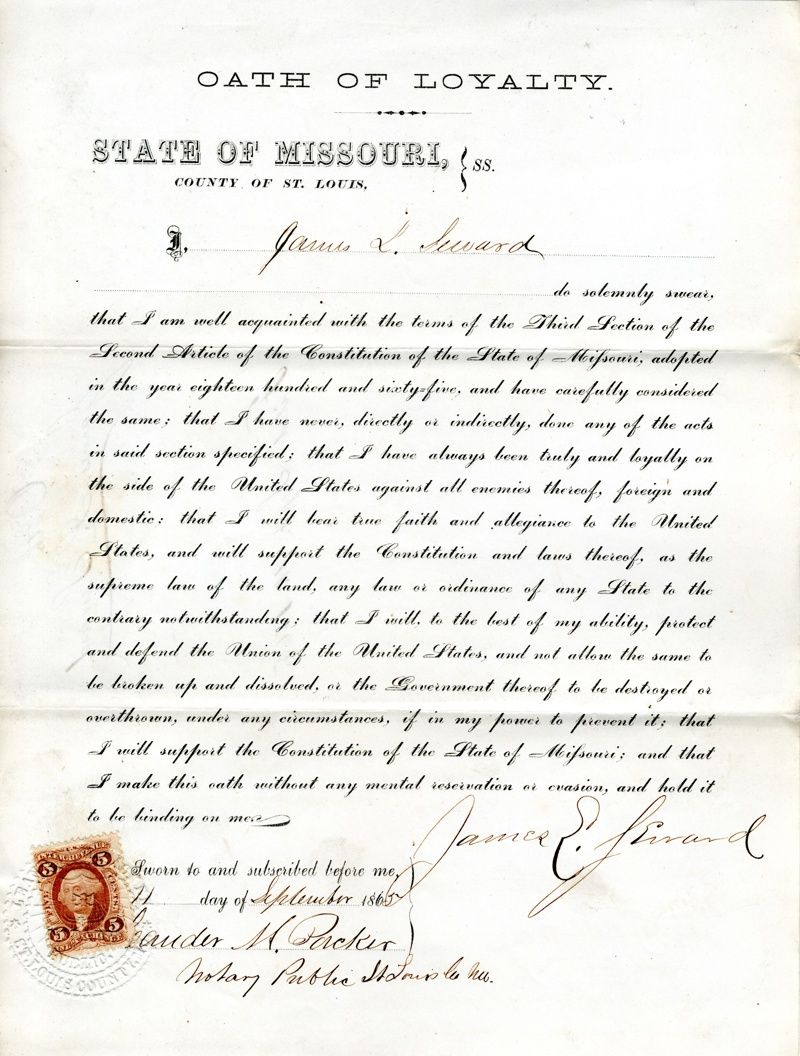 OATH OF LOYALTY.
STATE OF MISSOURI, } SS.
COUNTY OF ST. LOUIS,
I, James L. Seward
do solemnly swear,
that I am well acquainted with the terms of the Third Section of the
Second Article of the Constitution of the State of Miſsouri, adopted
in the year eighteen hundred and sixty=five, and have carefully considered
the same; that I have never, directly or indirectly, done any of the acts
in said section specified; that I have always been truly and loyally on
the side of the United States against all enemies thereof, foreign and
domestic: that I will bear true faith and allegiance to the United
States, and will support the Constitution and laws thereof, as the
supreme law of the land, any law or ordinance of any State to the
contrary notwithstanding; that I will, to the best of my ability, protect
and defend the Union of the United States, and not allow the same to
be broken up and dissolved, or the Government thereof to be destroyed or
overthrown, under any circumstances, if in my power to prevent it; that
I will support the Constitution of the State of Miſsouri; and that
I make this oath without any mental reservation or evasion, and hold it
to be binding on me.
James E. Seward
Sworn to and subscribed before me,
11 day of September 1865
eander M. Packer
Notary Public St Louis Co Mo.
5 5
5 5
ST. LOUIS COUNTY